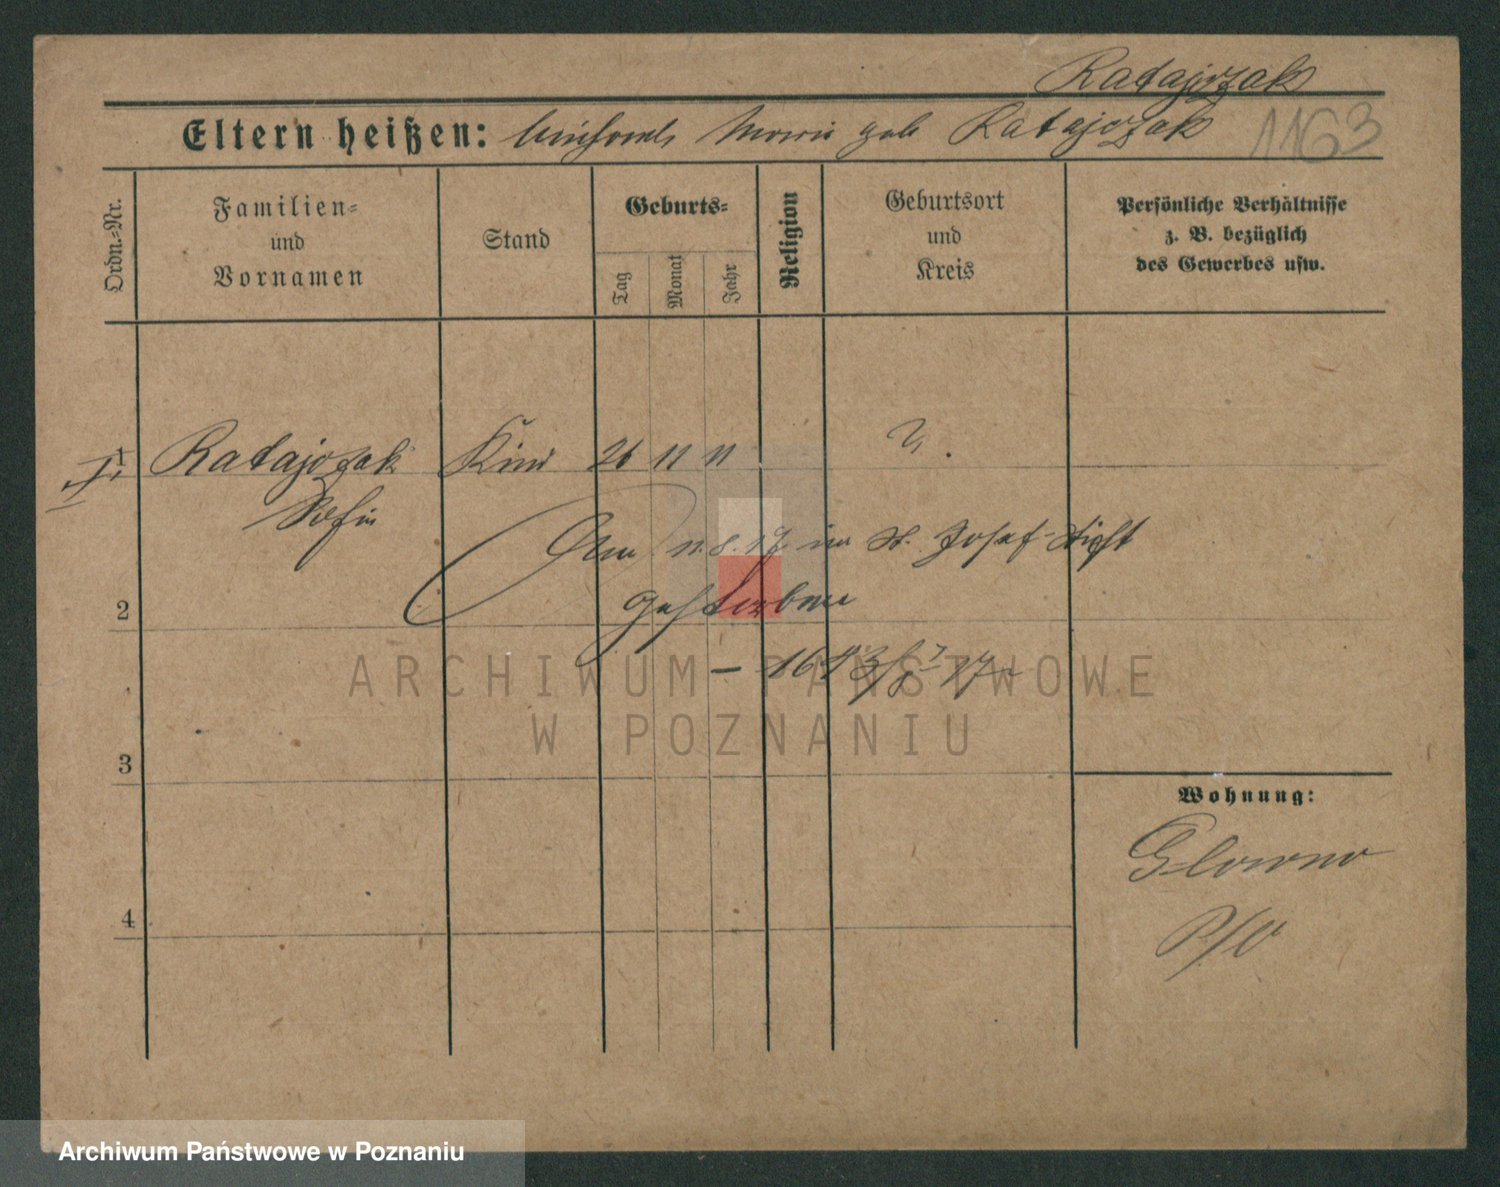 Ratajczak
Eltern heißen: Marie geb Ratajczak 1163
Ordn.-Nr.
Familien-
und
Vornamen
Stand
Geburts-
Tag
Monat
Jahr
Religion
Geburtsort
und
Kreis
Persönliche Verhältnisse
z. B. bezüglich
des Gewerbes usw.
1 Ratajczak Kind 26 11 11 ?.
Sofie
Am 11.8.17 im St. Josef-Stift
gestorben
2
ARCHIWUM PAŃSTWOWE
W POZNANIU
3
Wohnung:
Glowno
4
Archiwum Państwowe w Poznaniu